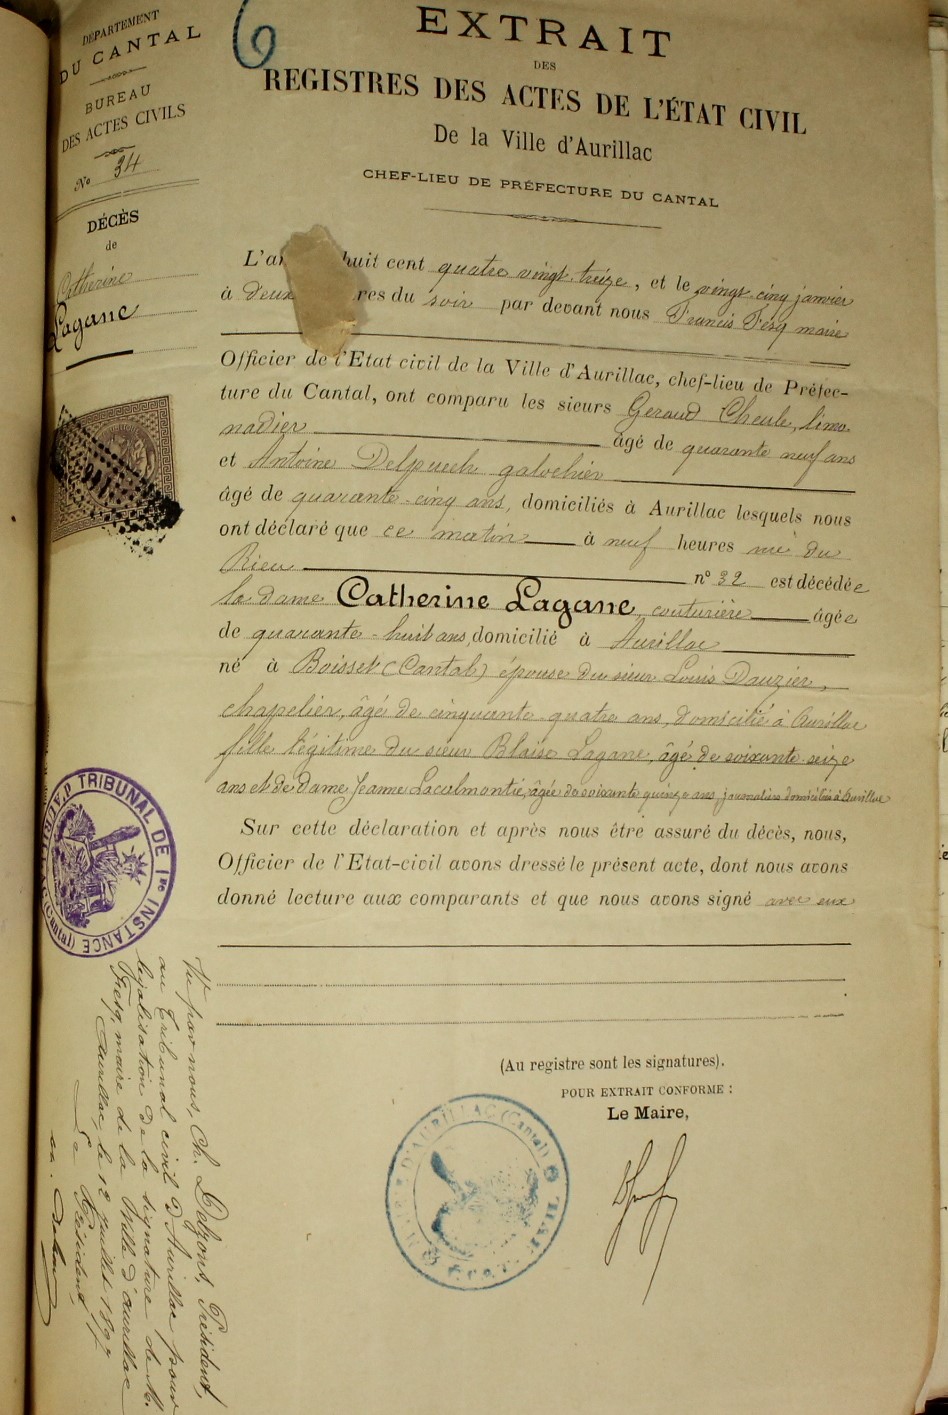 DÉPARTEMENT
DU CANTAL
BUREAU
DES ACTES CIVILS
No 34
DÉCÈS
de
Catherine
Lagane
6
EXTRAIT
DES
REGISTRES DES ACTES DE L'ÉTAT CIVIL
De la Ville d'Aurillac
CHEF-LIEU DE PRÉFECTURE DU CANTAL
L'a huit cent quatre vingt treize, et le vingt-cinq janvier
à deux res du soir par devant nous Francis Fesq maire
Officier de l'Etat civil de la Ville d'Aurillac, chef-lieu de Préfec-
ture du Cantal, ont comparu les sieurs Geraud Cheule, limo
nadier âgé de quarante neuf ans
et Antoine Delpuech galochier
âgé de quarante-cinq ans, domiciliés à Aurillac lesquels nous
ont déclaré que ce matin à neuf heures rue du
Rieu n° 32 est décédée
la dame Catherine Lagane, couturière âgée
de quarante-huit ans, domicilié à Aurillac
né à Boisset (Cantal) épouse du sieur Louis Dauzier,
chapelier, âgé de cinquante-quatre ans, domicilié à Aurillac
fille légitime du sieur Blaise Lagane, âgé de soixante-seize
ans et de Dame Jeanne Lacalmontie, âgée de soixante quinze ans, journaliers domiciliés à Aurillac
Sur cette déclaration et après nous être assuré du décès, nous,
Officier de l'Etat-civil avons dressé le présent acte, dont nous avons
donné lecture aux comparants et que nous avons signé avec eux
(Au registre sont les signatures).
POUR EXTRAIT CONFORME :
Le Maire,
MAIRIE D'AURILLAC (Cantal)
TRIBUNAL DE 1re INSTANCE D'AURILLAC (Cantal)
Vu par nous, Ch. Dalzons, Président,
au Tribunal civil d'Aurillac pour
légalisation de la signature de M.
Fesq, maire de la Ville d'Aurillac
Aurillac, le 12 juillet 1897
Le Président,